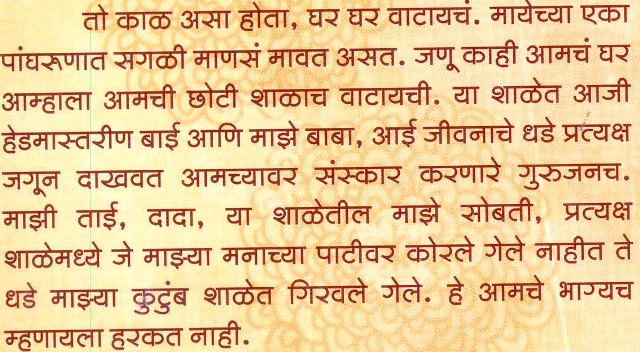 तो काळ असा होता, घर घर वाटायचं. मायेच्या एका
पांघरूणात सगळी माणसं मावत असत. जणू काही आमचं घर
आम्हाला आमची छोटी शाळाच वाटायची. या शाळेत आजी
हेडमास्तरीण बाई आणि माझे बाबा, आई जीवनाचे धडे प्रत्यक्ष
जगून दाखवत आमच्यावर संस्कार करणारे गुरुजनच.
माझी ताई, दादा, या शाळेतील माझे सोबती, प्रत्यक्ष
शाळेमध्ये जे माझ्या मनाच्या पाटीवर कोरले गेले नाहीत ते
धडे माझ्या कुटुंब शाळेत गिरवले गेले. हे आमचे भाग्यच
म्हणायला हरकत नाही.